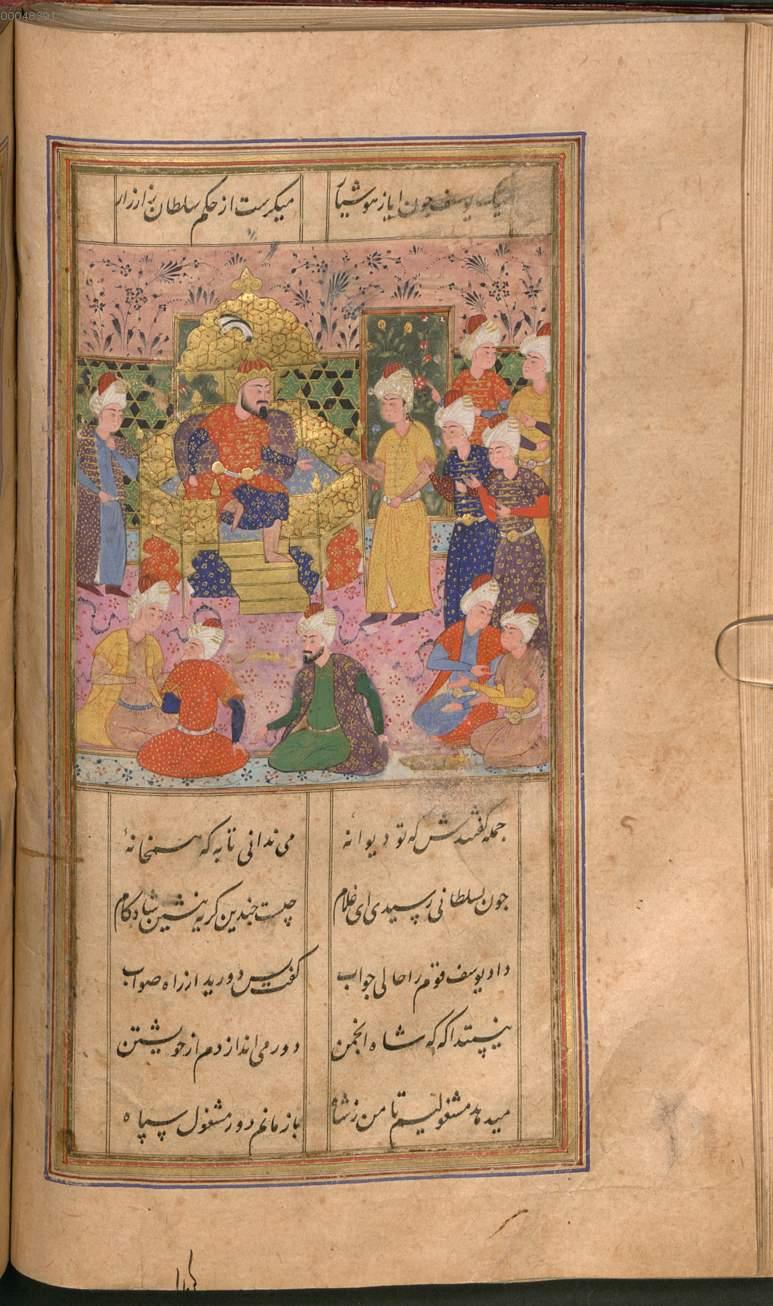 00048391
لیک یوسف جون ایاز هوشیار میکرست از حکم سلطان زار زار
جمله گفتندش که تو دیوانهٔ می ندانی تا به که همخانهٔ
جون بسلطانی رسیدی ای غلام چیست جندین کریه بنشین شادکام
داد یوسف قوم را حالی جواب گفت بس دورید از راه صواب
نیستید آکه که شاه انجمن دور می اندازدم از خویشتن
میدهد مشغولیم تا من ز شاه باز مانم دور مشغول سپاه